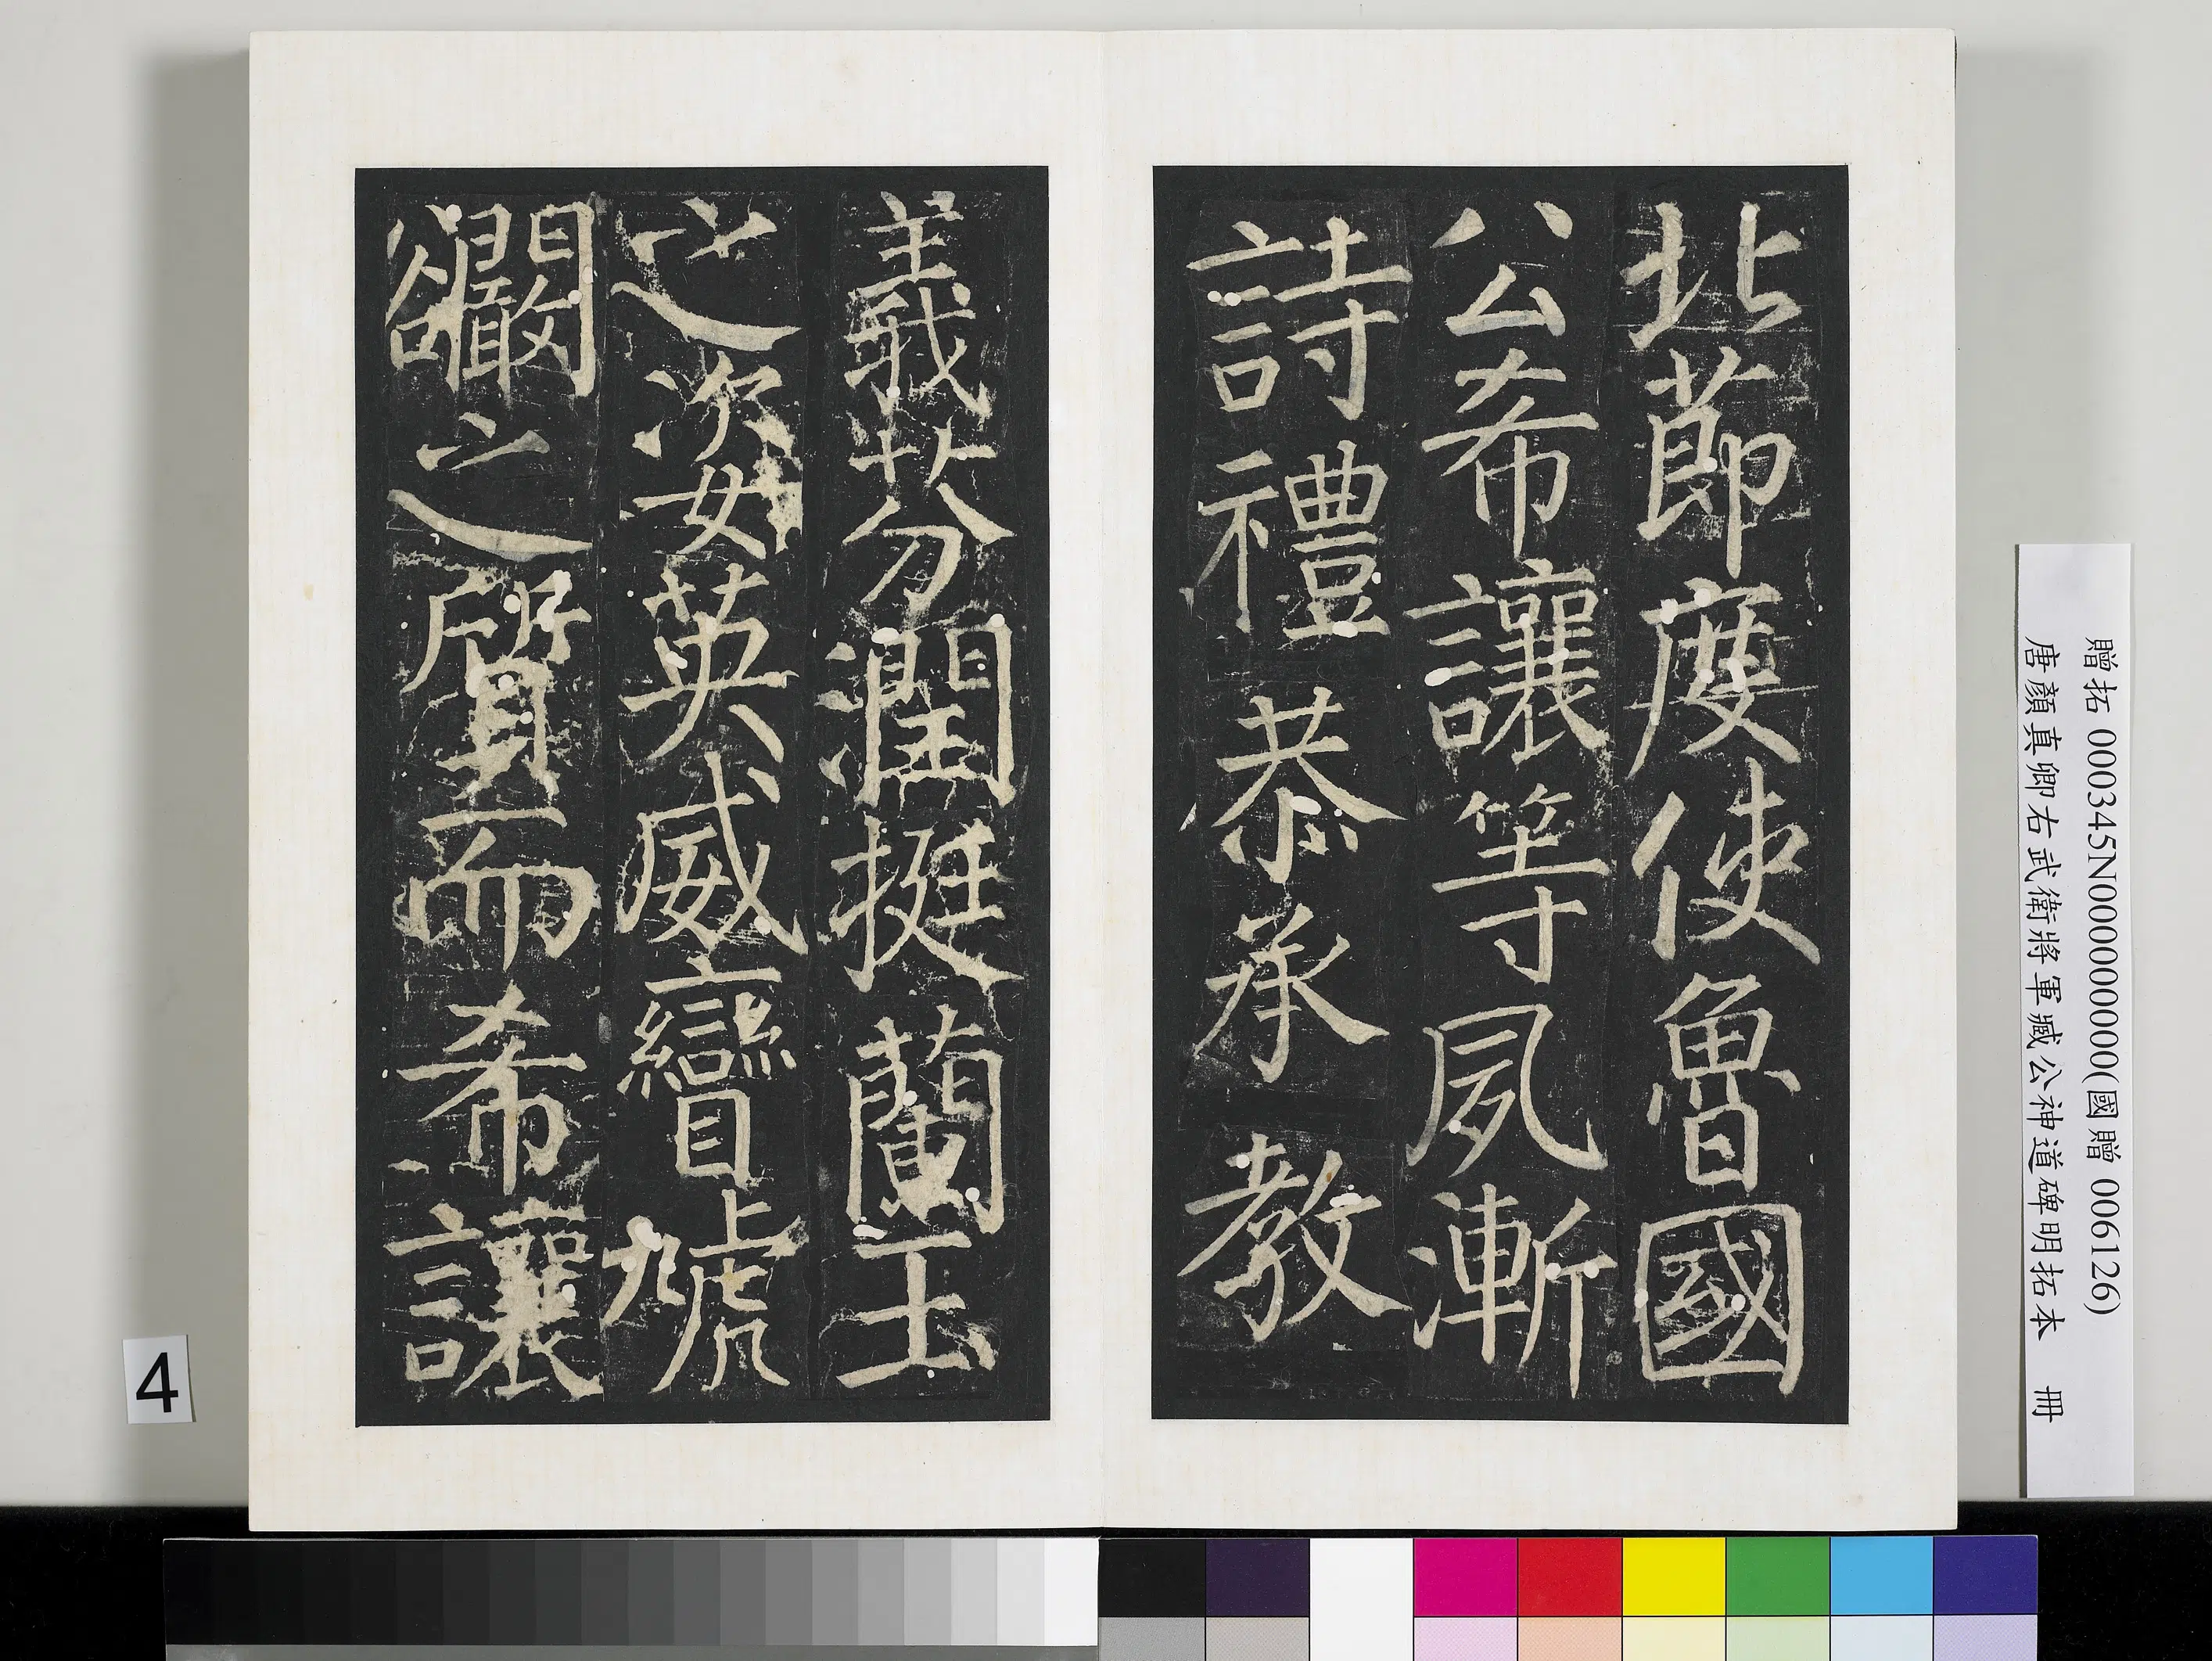 北節度使魯國
公希讓等夙漸
詩禮恭承教
義芬潤挺蘭玉
之姿英威彎虓
闞之質而希讓
贈拓 000345N000000000(國贈 006126)
唐顏真卿右武衛將軍臧公神道碑明拓本 冊
4